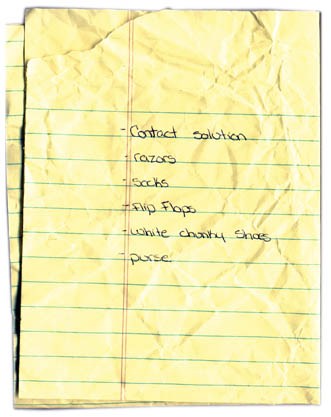 - Contact solution
- razors
- socks
- Flip Flops
- white chunky shoes
- purse